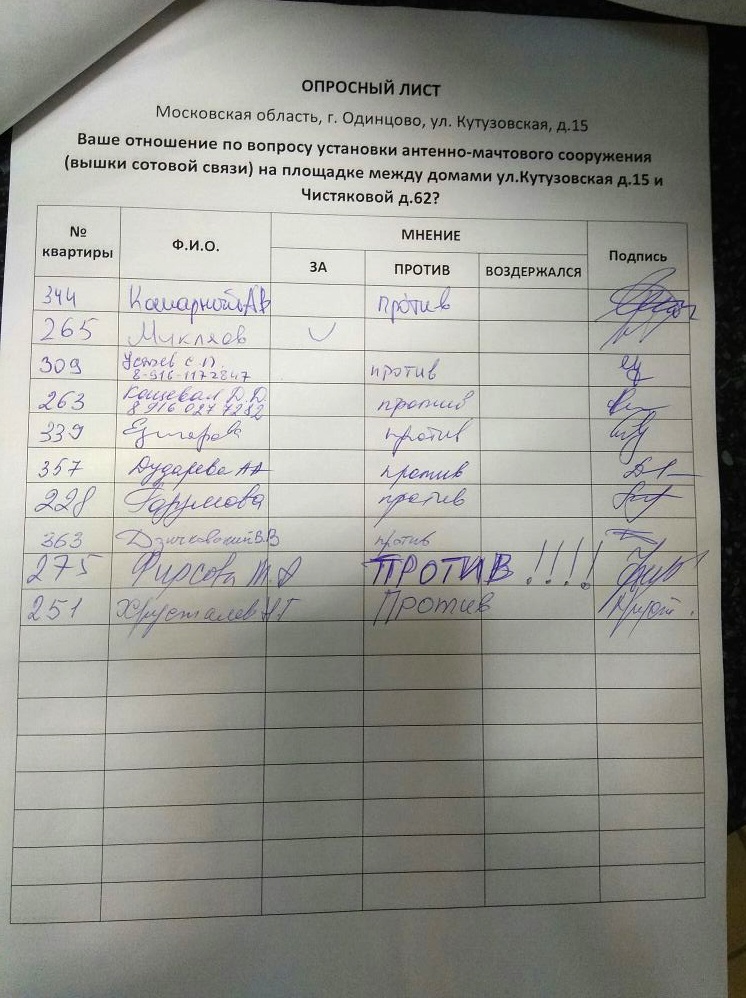 ОПРОСНЫЙ ЛИСТ
Московская область, г. Одинцово, ул. Кутузовская, д.15
Ваше отношение по вопросу установки антенно-мачтового сооружения
(вышки сотовой связи) на площадке между домами ул.Кутузовская д.15 и
Чистяковой д.62?
№ квартиры Ф.И.О. МНЕНИЕ Подпись
ЗА ПРОТИВ ВОЗДЕРЖАЛСЯ
344 против
265 Микляев
309 против
8-916-1172847
263 Кощевая Д.Д против
8 916 027 7282
339 против
357 Дударева АА против
228 против
363 Дзичковский В.В против
275 Фирсова Т.А ПРОТИВ !!!!
251 Хрусталев НГ Против